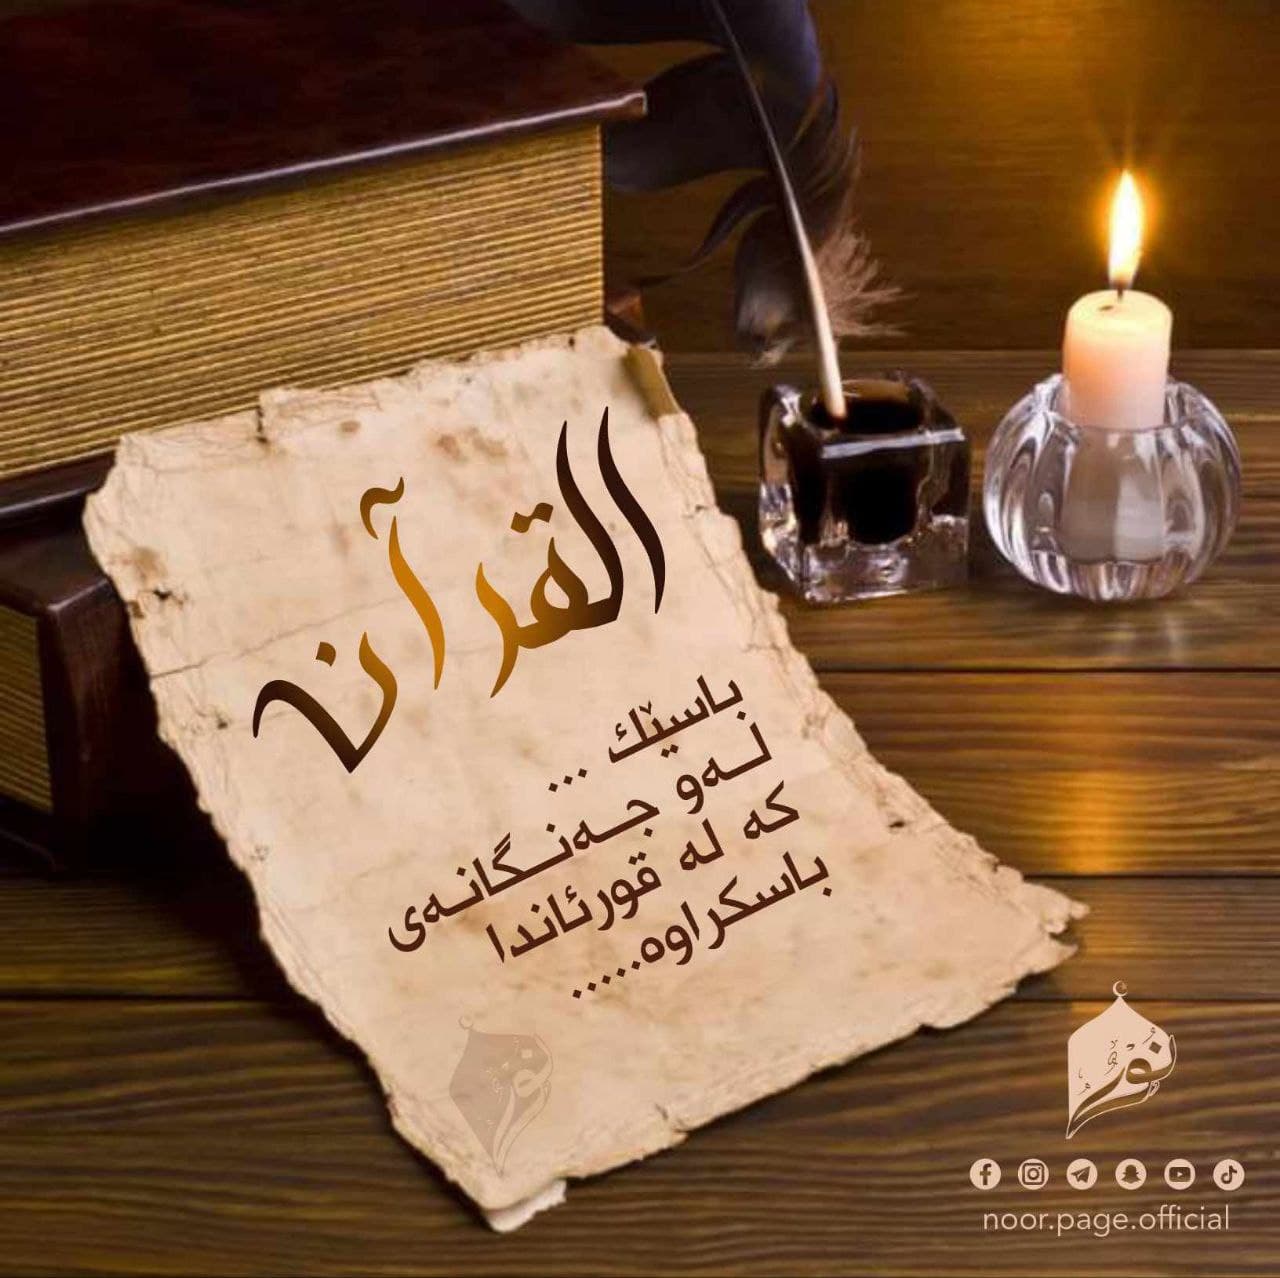 القرآن
باسێك ...
لـەو جـەنـگانـەی
کە لە قورئاندا
باسکراوە.....
نُور
noor.page.official